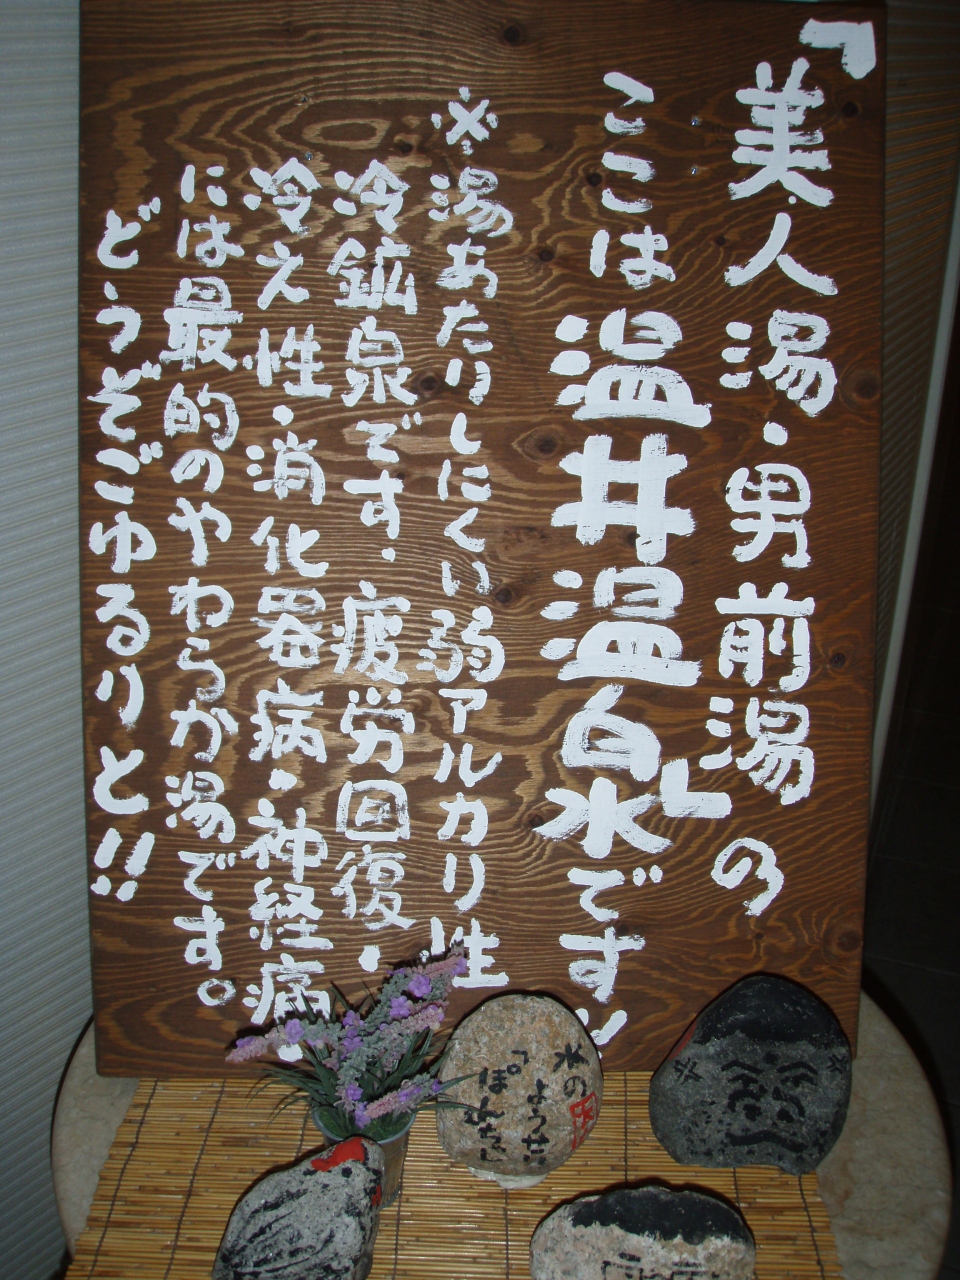 『美人湯・男前湯』の
ここは温井温白水です
※湯あたりしにくい弱アルカリ性
冷鉱泉です・疲労回復・
冷え性・消化器病・神経痛
には最的のやわらか湯です。
どうぞごゆるりと!!
水の
ようせい
「ぽんちゃ」